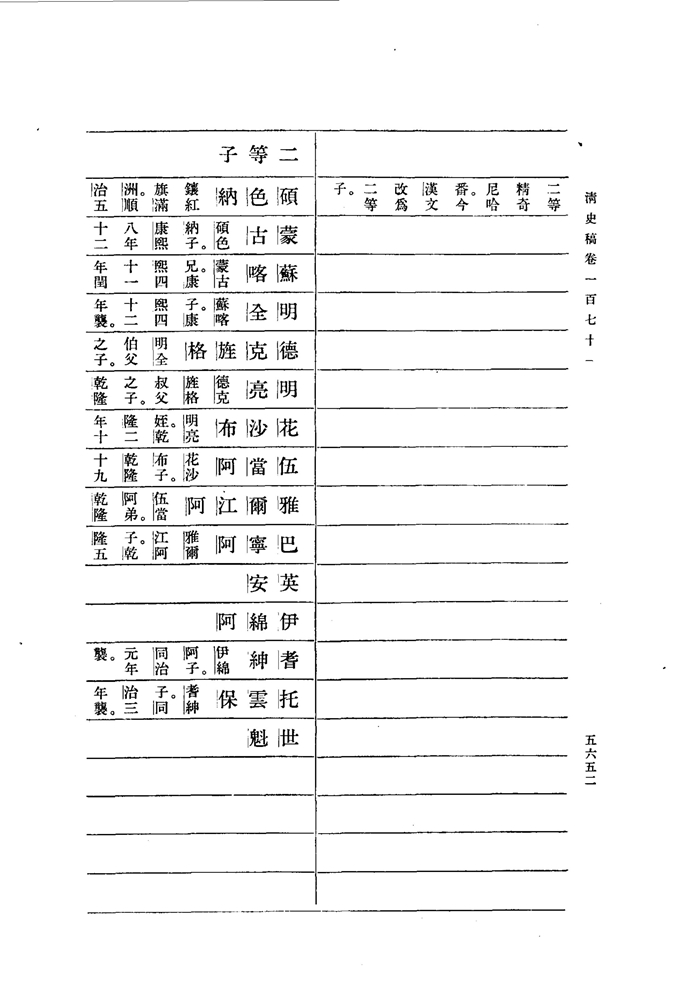 清史稿卷一百七十一
二等精奇尼哈番。今漢文改爲二等子。
二等子
碩色納 鑲紅旗滿洲。順治五
蒙古 碩色納子。康熙八年十二
蘇喀 蒙古兄。康熙四十一年閏
明全 蘇喀子。康熙四十二年襲。
德克旌格 明全伯父之子。
明亮 德克旌格叔父之子。乾隆
花沙布 明亮姪。乾隆二年十
伍當阿 花沙布子。乾隆十九
雅爾江阿 伍當阿弟。乾隆
巴寧阿 雅爾江阿子。乾隆五
英安
伊綿阿
耆紳 伊綿阿子。同治元年襲。
托雲保 耆紳子。同治三年襲。
世魁
五六五二